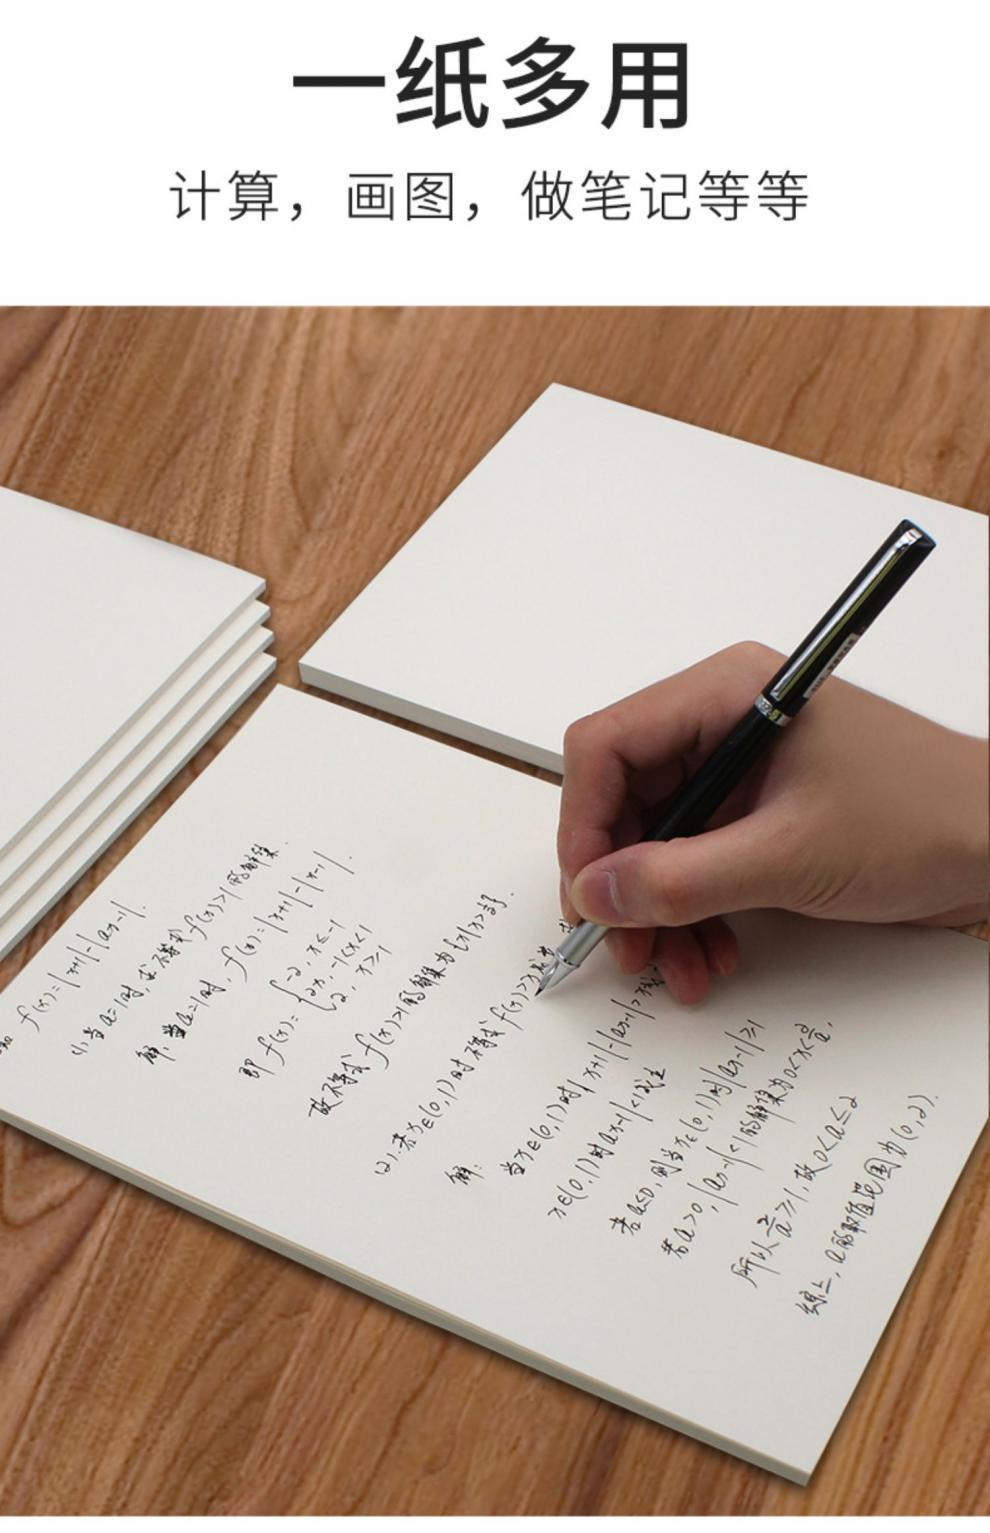 一纸多用
计算，画图，做笔记等等
已知 f(x)=|x+1|-|ax-1|.
(1) 当a=1时,求不等式f(x)>1的解集.
解:当a=1时, f(x)=|x+1|-|x-1|.
即 f(x)={-2, x≤-1
2x, -1<x<1
2, x≥1
故不等式 f(x)>1的解集为{x|x>½}.
(2).若x∈(0,1)时不等式f(x)>x成立
解:
当x∈(0,1)时|x+1|-|ax-1|>x
x∈(0,1)时|ax-1|<1成立
若a≤0,则当x∈(0,1)时|ax-1|≥1
若a>0,|ax-1|<1的解集为0<x<2/a,
所以2/a≥1,故0<a≤2
综上,a的取值范围为(0,2].